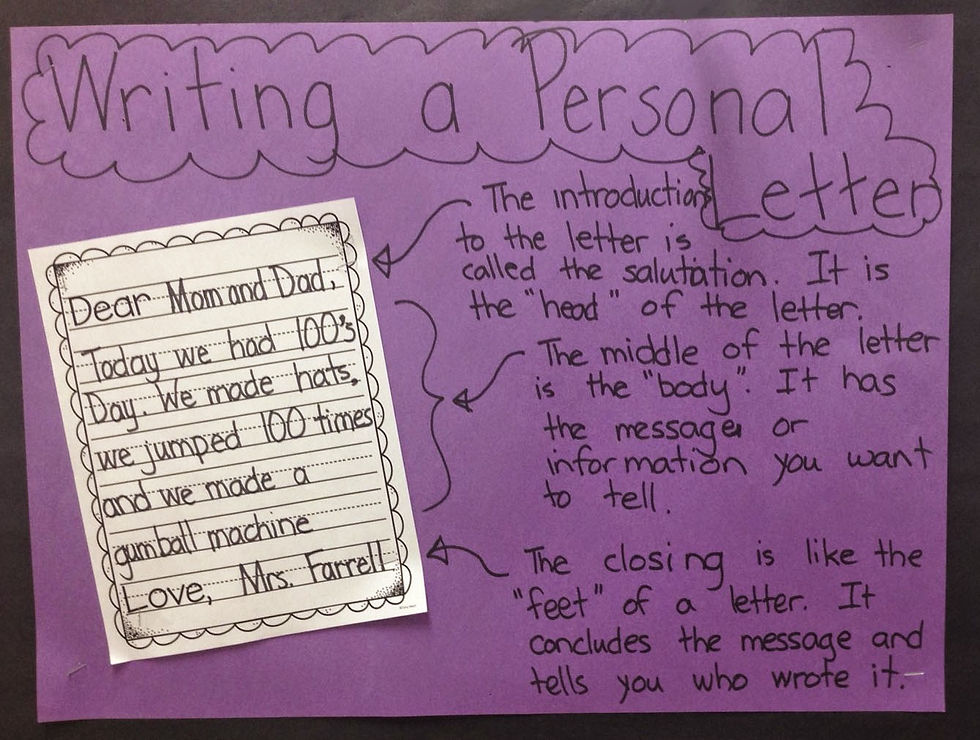 Writing a Personal
Letter
Dear Mom and Dad,
Today we had 100's
Day. We made hats,
we jumped 100 times
and we made a
gumball machine
Love, Mrs. Farrell
The introduction
to the letter is
called the salutation. It is
the "head" of the letter.
The middle of the letter
is the "body". It has
the message or
information you want
to tell.
The closing is like the
"feet" of a letter. It
concludes the message and
tells you who wrote it.